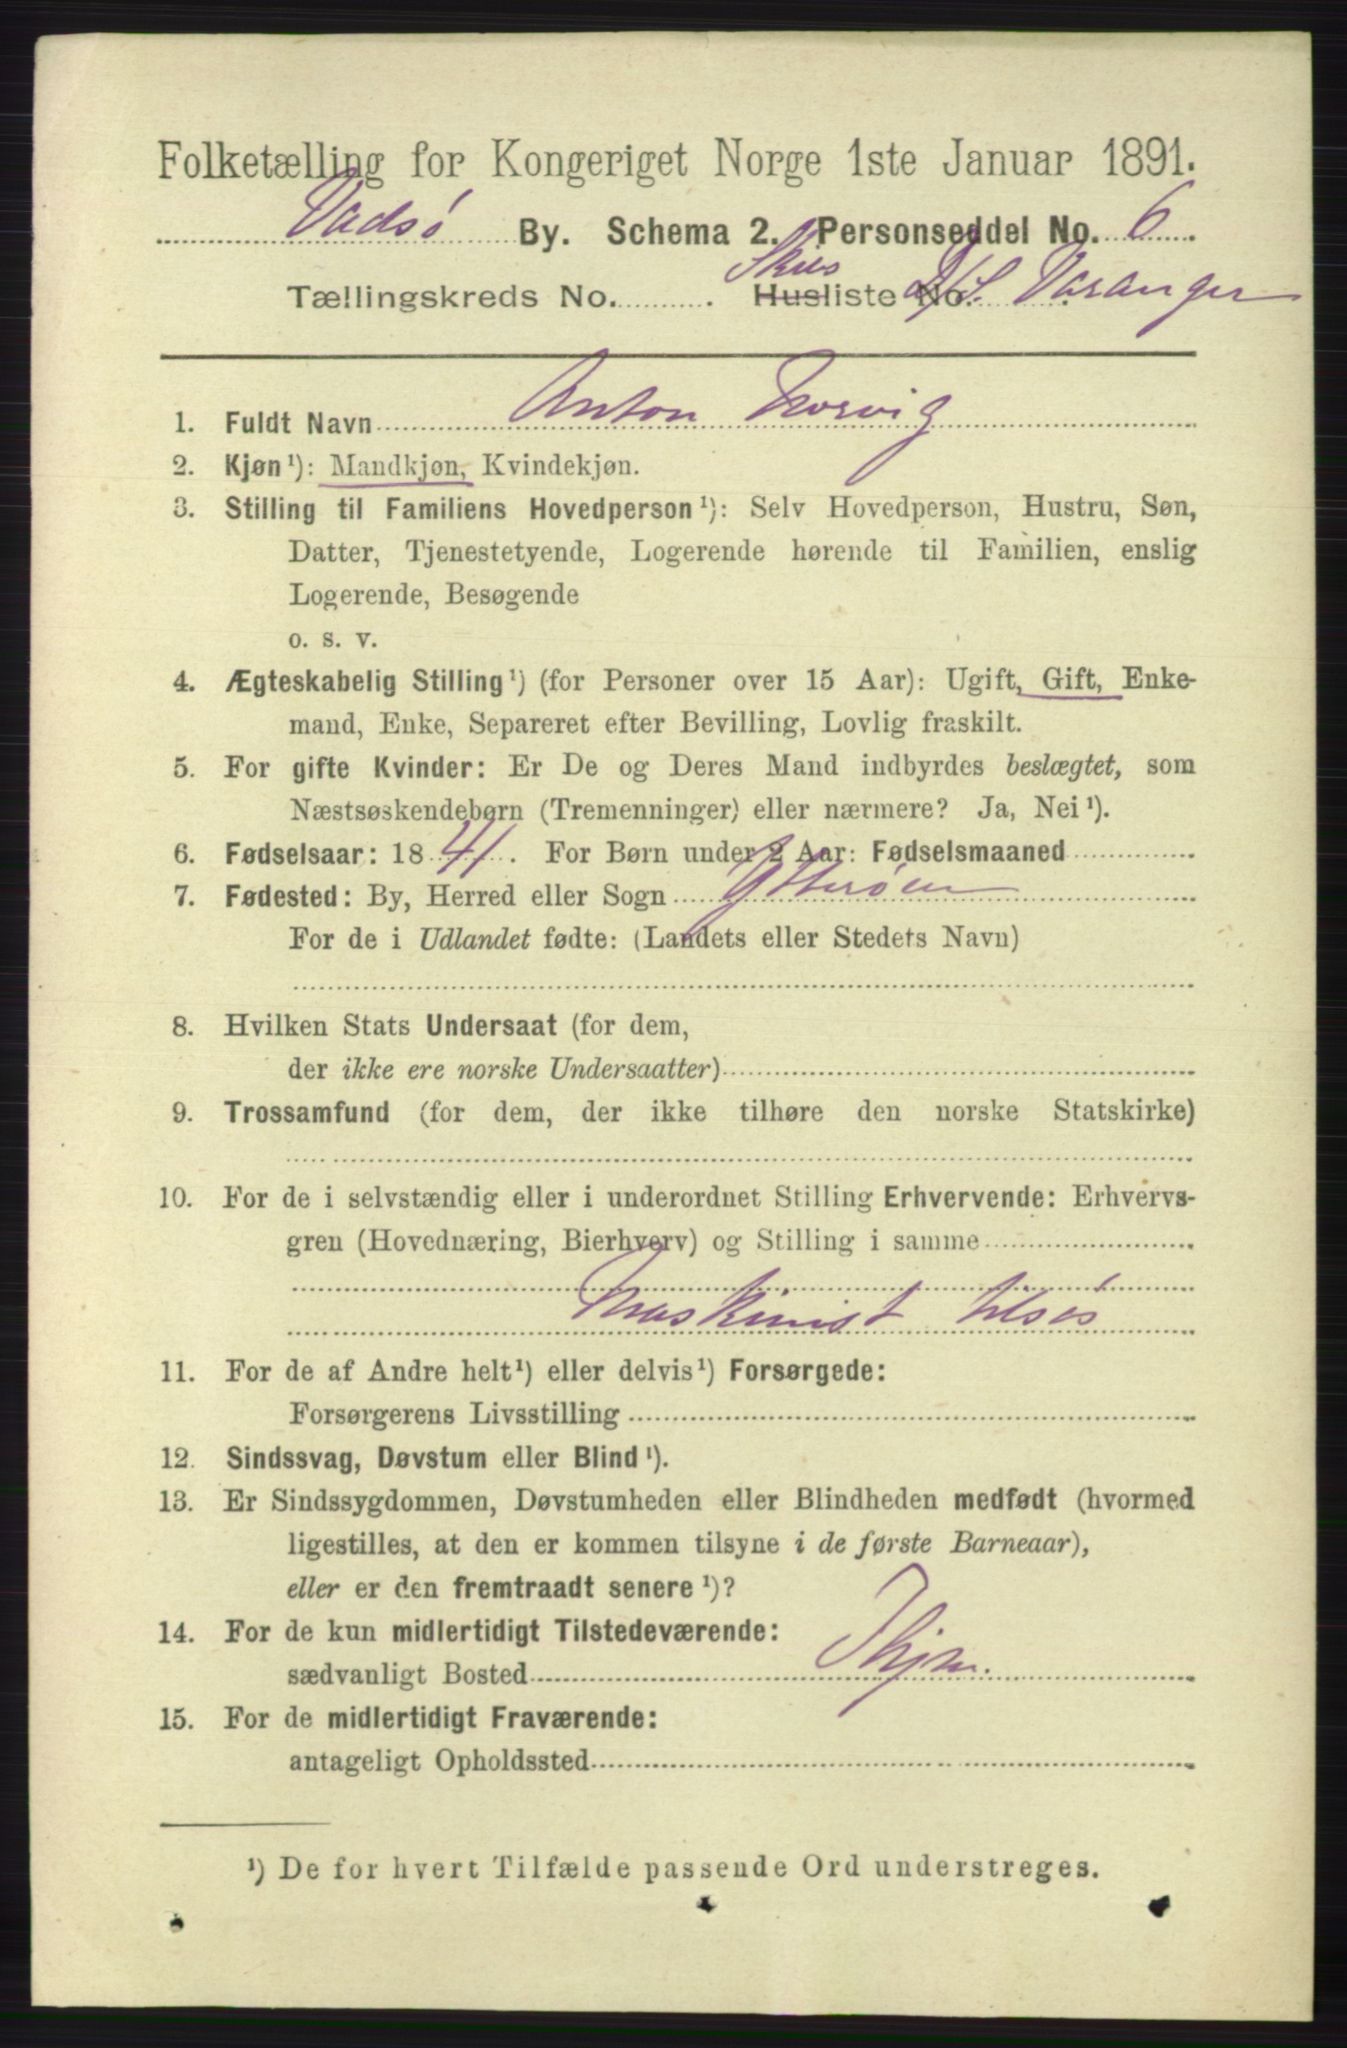 Folketælling for Kongeriget Norge 1ste Januar 1891.
Vadsø By. Schema 2. Personseddel No. 6
Tællingskreds No. Skibs Husliste No. D/S. Varanger
1. Fuldt Navn Anton
2. Kjøn¹): Mandkjøn, Kvindekjøn.
3. Stilling til Familiens Hovedperson¹): Selv Hovedperson, Hustru, Søn,
Datter, Tjenestetyende, Logerende hørende til Familien, enslig
Logerende, Besøgende
o. s. v.
4. Ægteskabelig Stilling¹) (for Personer over 15 Aar): Ugift, Gift, Enke-
mand, Enke, Separeret efter Bevilling, Lovlig fraskilt.
5. For gifte Kvinder: Er De og Deres Mand indbyrdes beslægtet, som
Næstsøskendebørn (Tremenninger) eller nærmere? Ja, Nei¹).
6. Fødselsaar: 1841. For Børn under 2 Aar: Fødselsmaaned
7. Fødested: By, Herred eller Sogn Ytterøen
For de i Udlandet fødte: (Landets eller Stedets Navn)
8. Hvilken Stats Undersaat (for dem,
der ikke ere norske Undersaatter)
9. Trossamfund (for dem, der ikke tilhøre den norske Statskirke)
10. For de i selvstændig eller i underordnet Stilling Erhvervende: Erhvervs-
gren (Hovednæring, Bierhverv) og Stilling i samme
Maskinist tilsøs
11. For de af Andre helt¹) eller delvis¹) Forsørgede:
Forsørgerens Livsstilling
12. Sindssvag, Døvstum eller Blind¹).
13. Er Sindssygdommen, Døvstumheden eller Blindheden medfødt (hvormed
ligestilles, at den er kommen tilsyne i de første Barneaar),
eller er den fremtraadt senere¹)?
14. For de kun midlertidigt Tilstedeværende:
sædvanligt Bosted Thjm.
15. For de midlertidigt Fraværende:
antageligt Opholdssted
¹) De for hvert Tilfælde passende Ord understreges.